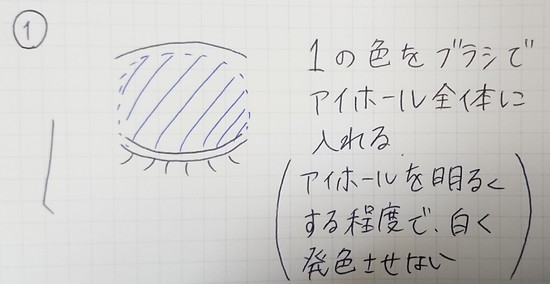 ①
1の色をブラシで
アイホール全体に
入れる
(アイホールを明るく
する程度で、白く
発色させない)